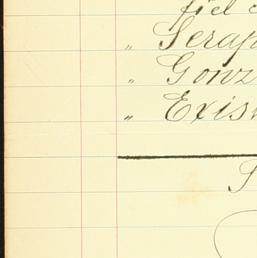 fiel
„ Serap
„ Gonz
„ Exis